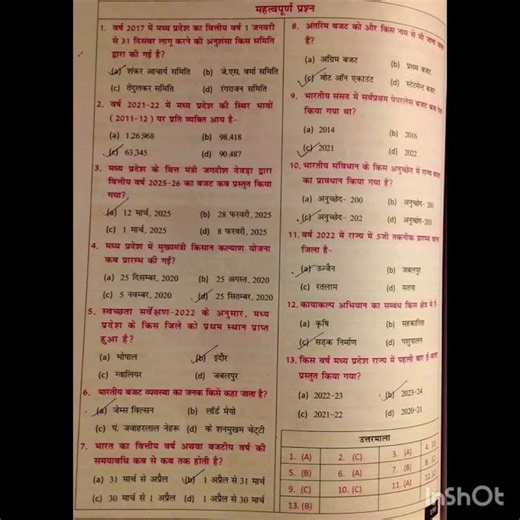 महत्वपूर्ण प्रश्न
1. वर्ष 2017 में मध्य प्रदेश का वित्तीय वर्ष 1 जनवरी
से 31 दिसंबर लागू करने की अनुशंसा किस समिति
द्वारा की गई है?
(a) शंकर आचार्य समिति (b) जे.एस. वर्मा समिति
(c) तेंदुलकर समिति (d) रंगराजन समिति
2. वर्ष 2021-22 में मध्य प्रदेश की स्थिर भावों
(2011-12) पर प्रति व्यक्ति आय है-
(a) 1,26,968 (b) 98,418
(c) 63,345 (d) 90,487
3. मध्य प्रदेश के वित्त मंत्री जगदीश देवड़ा द्वारा
वित्तीय वर्ष 2025-26 का बजट कब प्रस्तुत किया
गया?
(a) 12 मार्च, 2025 (b) 28 फरवरी, 2025
(c) 1 मार्च, 2025 (d) 8 फरवरी, 2025
4. मध्य प्रदेश में मुख्यमंत्री किसान कल्याण योजना
कब प्रारम्भ की गई?
(a) 25 दिसम्बर, 2020 (b) 25 अगस्त, 2020
(c) 5 नवम्बर, 2020 (d) 25 सितम्बर, 2020
5. स्वच्छता सर्वेक्षण-2022 के अनुसार, मध्य
प्रदेश के किस जिले को प्रथम स्थान प्राप्त
हुआ है?
(a) भोपाल (b) इंदौर
(c) ग्वालियर (d) जबलपुर
6. भारतीय बजट व्यवस्था का जनक किसे कहा जाता है?
(a) जेम्स विल्सन (b) लॉर्ड मेयो
(c) पं. जवाहरलाल नेहरू (d) के शनमुखम चेट्टी
7. भारत का वित्तीय वर्ष अथवा बजटीय वर्ष की
समयावधि कब से कब तक होती है?
(a) 31 मार्च से अप्रैल (b) 1 अप्रैल से 31 मार्च
(c) 30 मार्च से 1 अप्रैल (d) 1 अप्रैल से 30 मार्च
8. अंतरिम बजट को और किस नाम से भी जाना जाता
है?
(a) अग्रिम बजट (b) प्रथम बजट
(c) वोट ऑन एकाउंट (d) स्टेटमेन्ट बजट
9. भारतीय संसद में सर्वप्रथम पेपरलेस बजट कब पेश
किया गया था?
(a) 2014 (b) 2016
(c) 2021 (d) 2022
10. भारतीय संविधान के किस अनुच्छेद में राज्य बजट
का प्रावधान किया गया है?
(a) अनुच्छेद- 200 (b) अनुच्छेद- 201
(c) अनुच्छेद- 202 (d) अनुच्छेद- 203
11. वर्ष 2022 में राज्य में 5जी तकनीक प्रारम्भ
जिला है-
(a) उज्जैन (b) जबलपुर
(c) रतलाम (d) सतना
12. कायाकल्प अभियान का सम्बंध किस क्षेत्र से है-
(a) कृषि (b) सहकारिता
(c) सड़क निर्माण (d) पशुपालन
13. किस वर्ष मध्य प्रदेश राज्य में पहली बार ई-बजट
प्रस्तुत किया गया?
(a) 2022-23 (b) 2023-24
(c) 2021-22 (d) 2020-21
उत्तरमाला
1. (A) 2. (C) 3. (A) 4.
5. (B) 6. (A) 7. (B) 8.
9. (C) 10. (C) 11. (A) 12.
13. (B)
InShOt